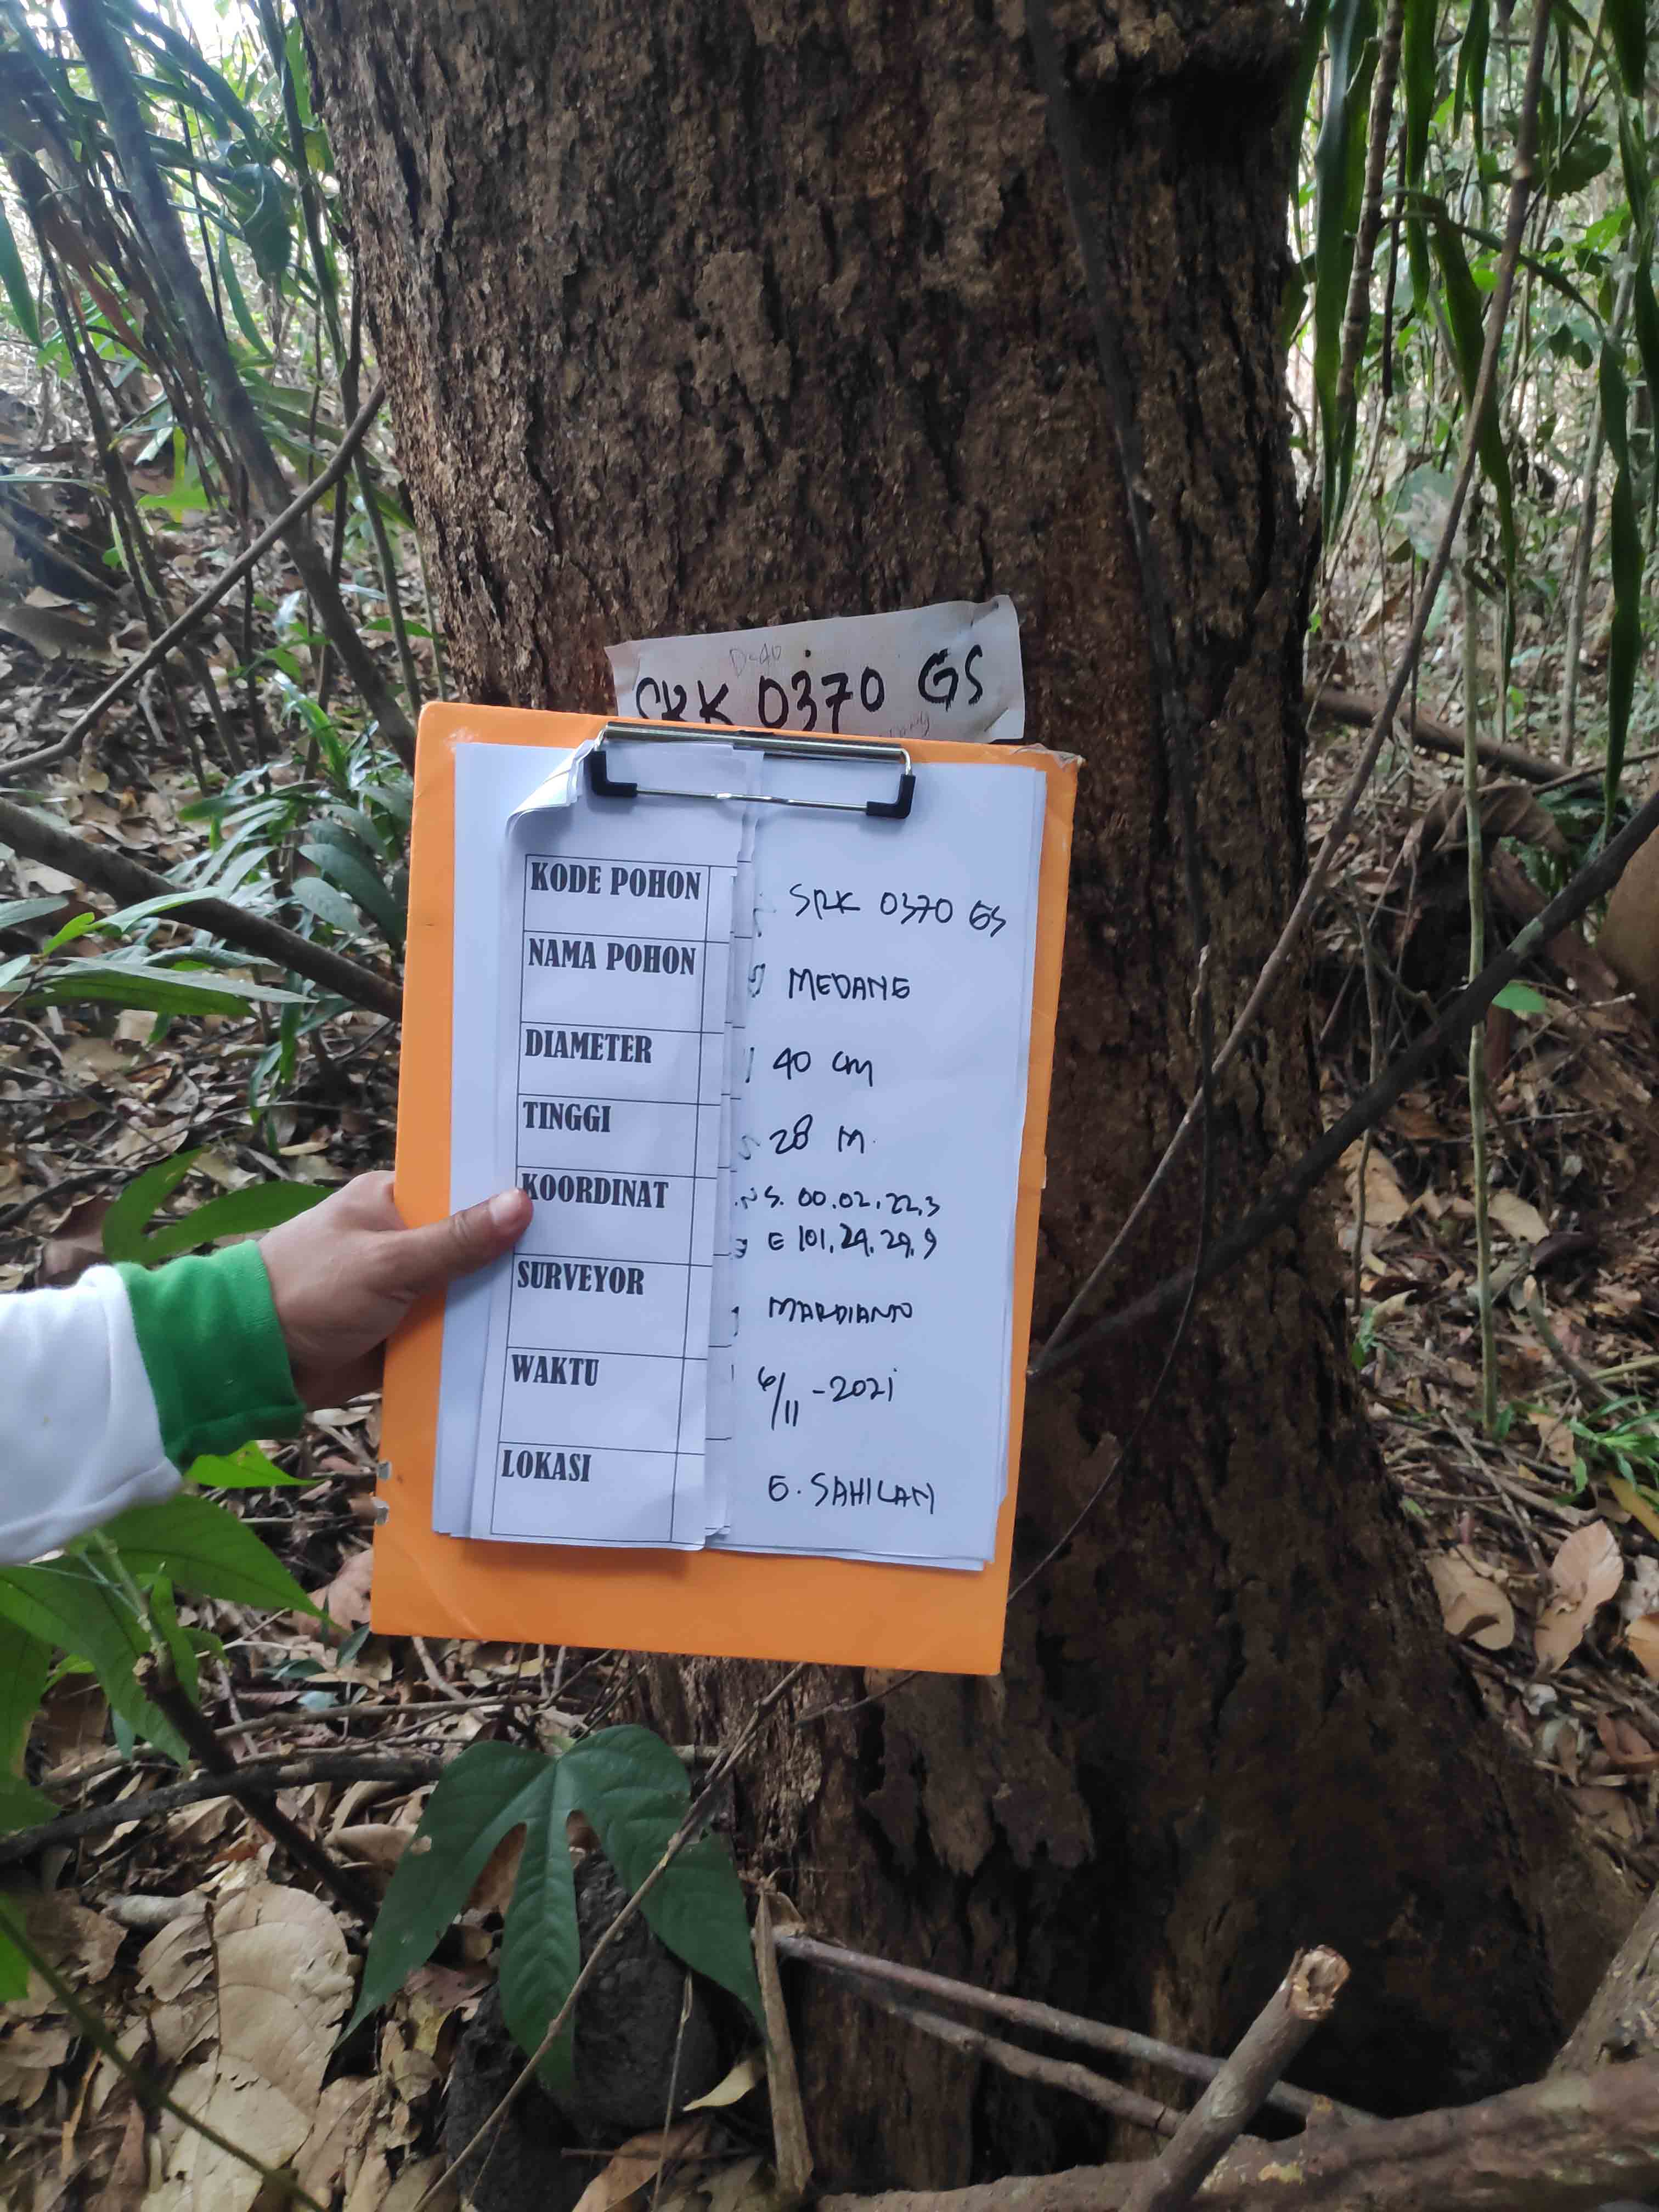 D=40
SRK 0370 GS
KODE POHON SRK 0370 GS
NAMA POHON MEDANG
DIAMETER 40 cm
TINGGI 28 M
KOORDINAT S. 00.02.22.3
E 101.29.29.9
SURVEYOR MARDIANTO
WAKTU 6/11-2021
LOKASI G. SAHILAN